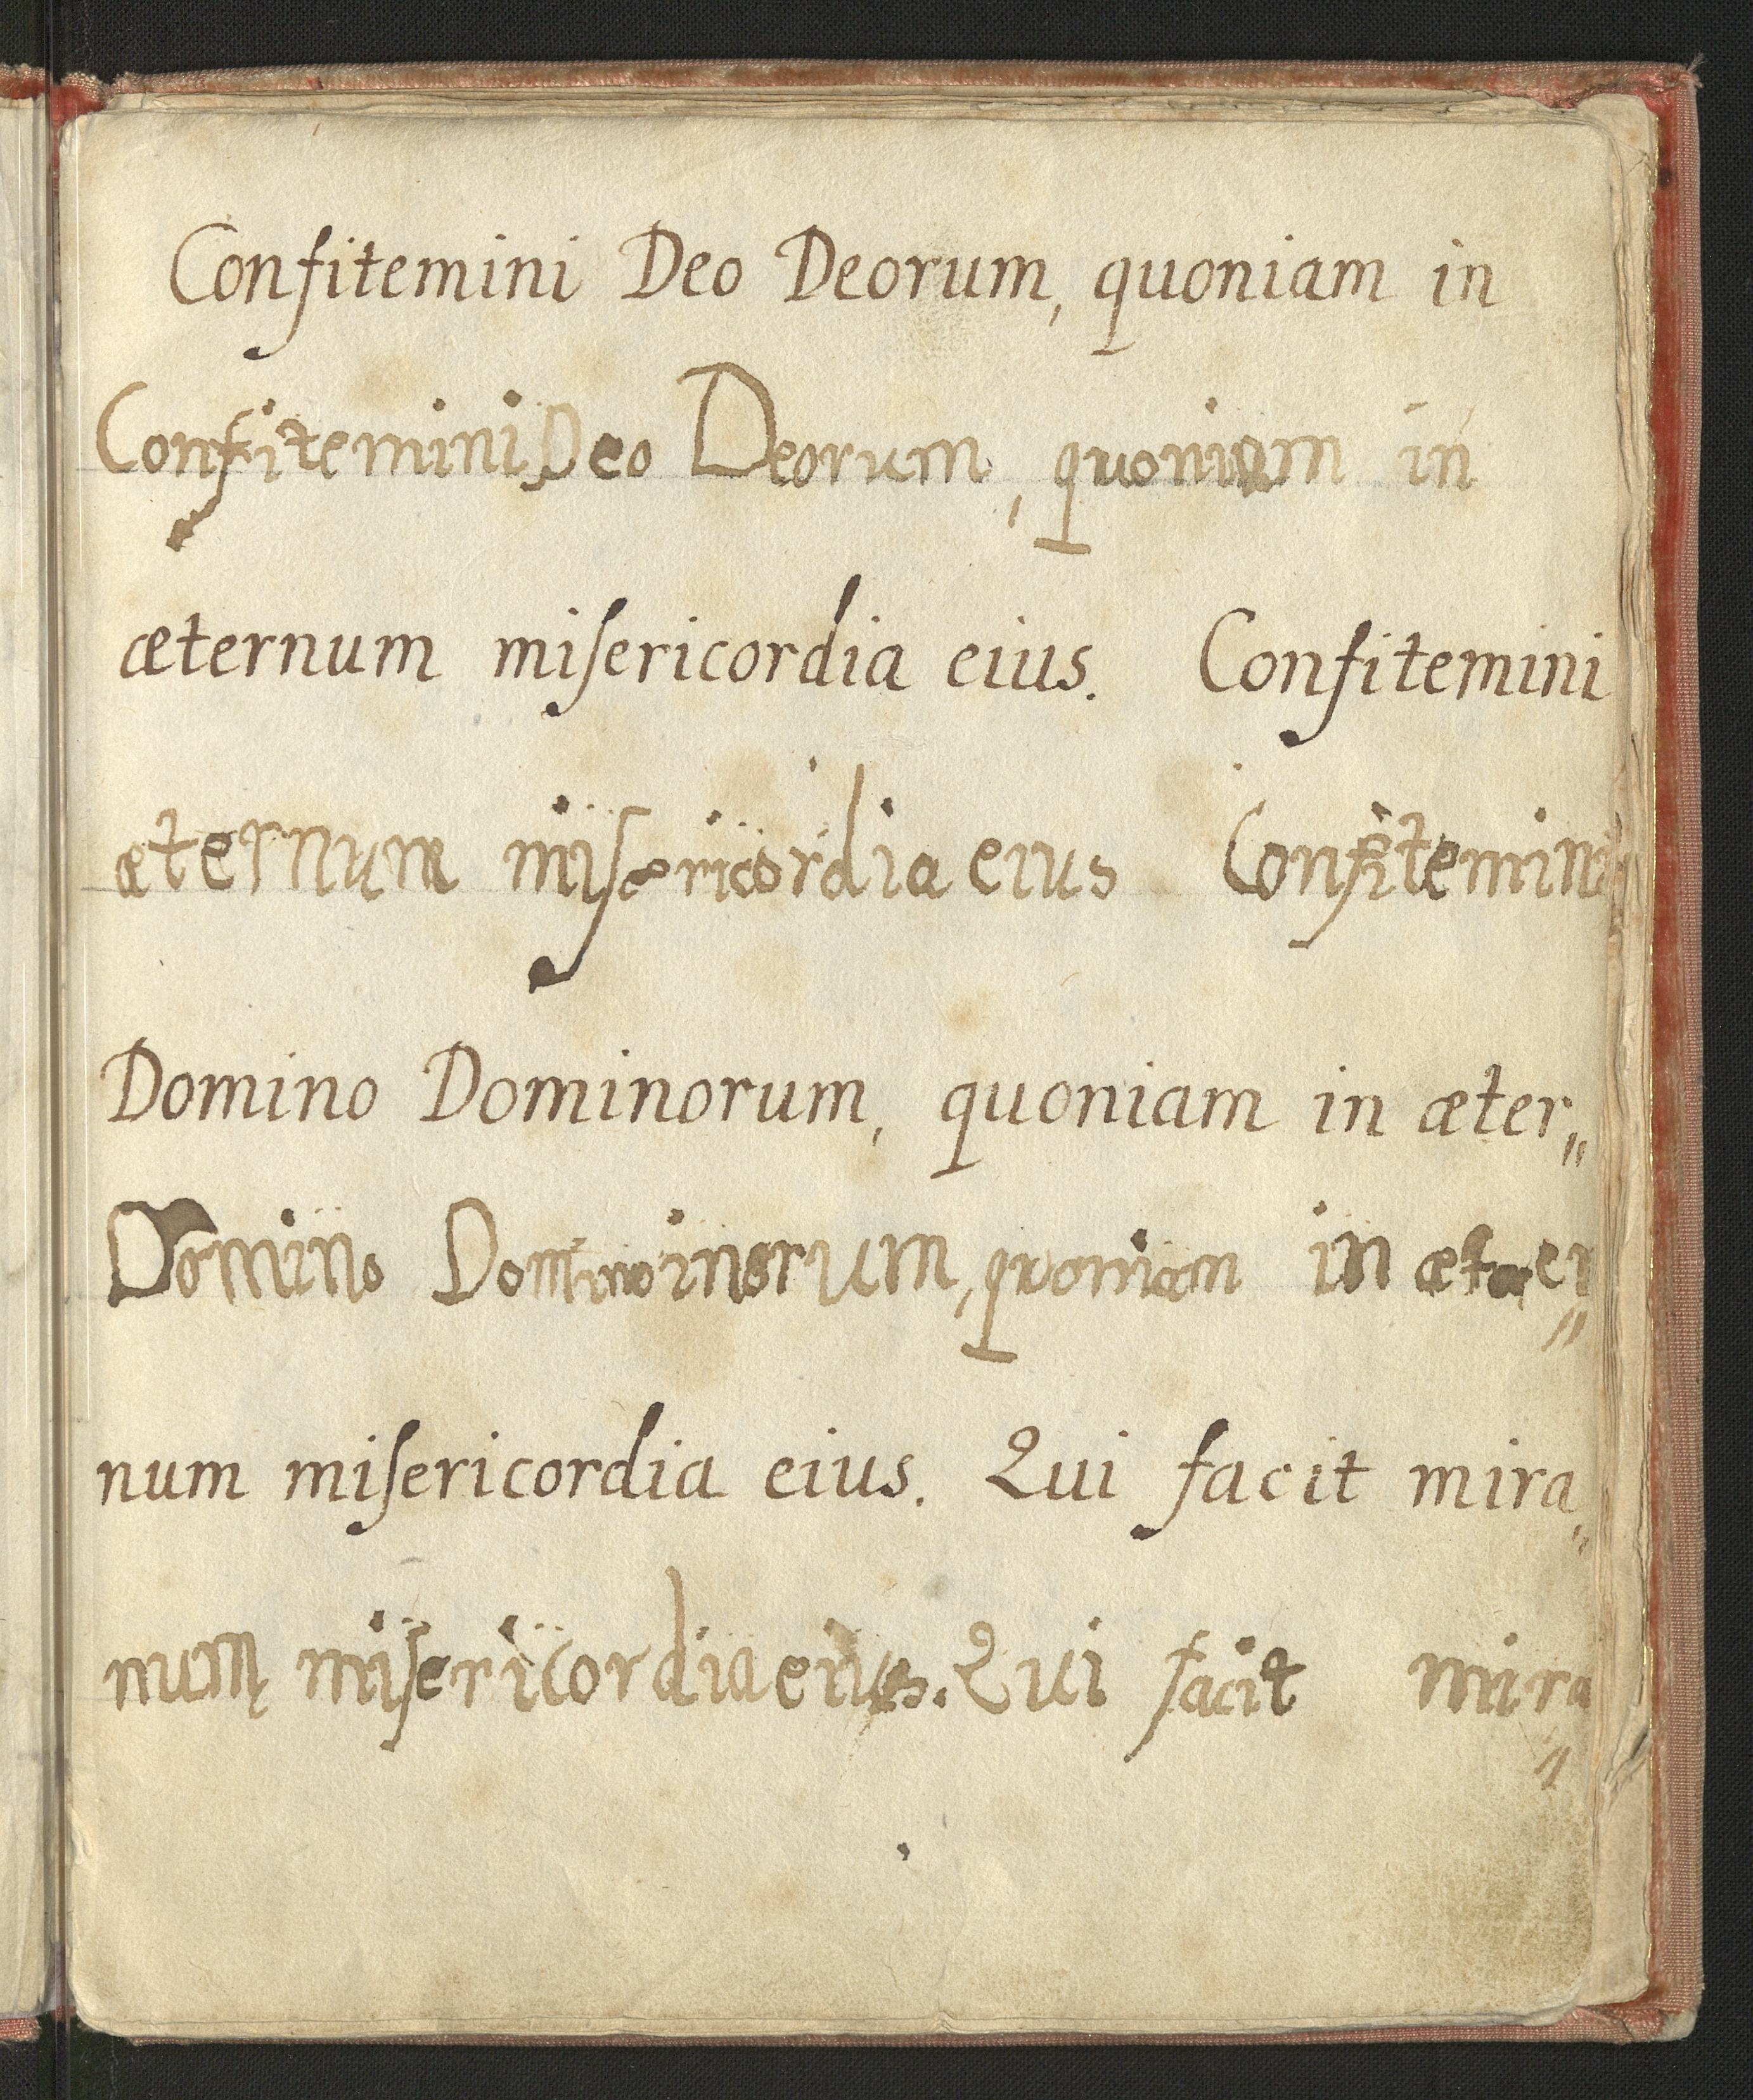 Confitemini Deo Deorum, quoniam in
Confitemini Deo Deorum, quoniam in
æternum miſericordia eius. Confitemini
æternum miſericordia eius Confitemini
Domino Dominorum, quoniam in æter„
Domino Dominoinorum, quoniam in æter„
num miſericordia eius. Qui facit mira„
num miſericordia eius. Qui facit mira„